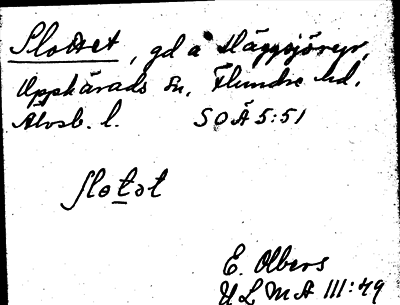 Slottet, gd å Häggsjöryr,
Upphärads sn, Flundre hd,
Älvsb. l. SOÄ 5:51
slotət
E. Olbers
ULMA 111:49